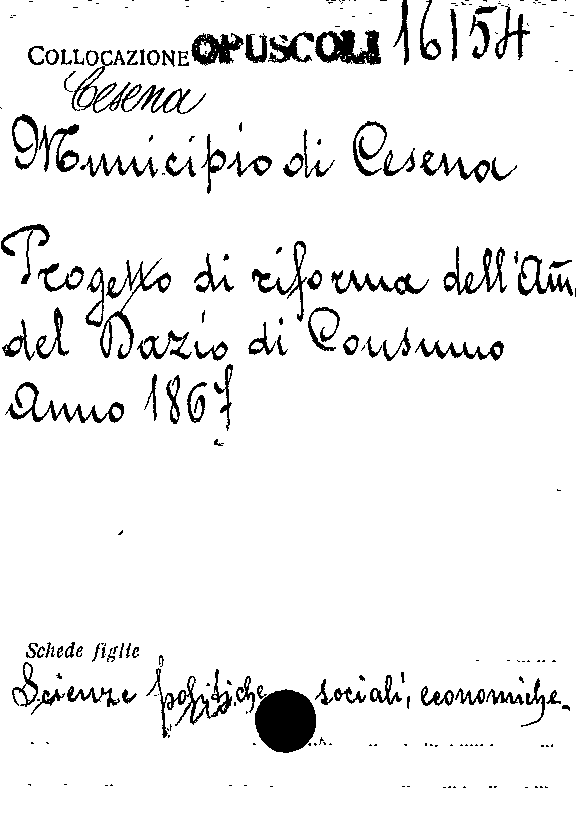 COLLOCAZIONE OPUSCOLI 16154
Cesena
Municipio di Cesena
Progetto di riforma dell'Am̃.
del Dazio di Consumo
Anno 1867
Schede figlie
Scienze politiche sociali, economiche.